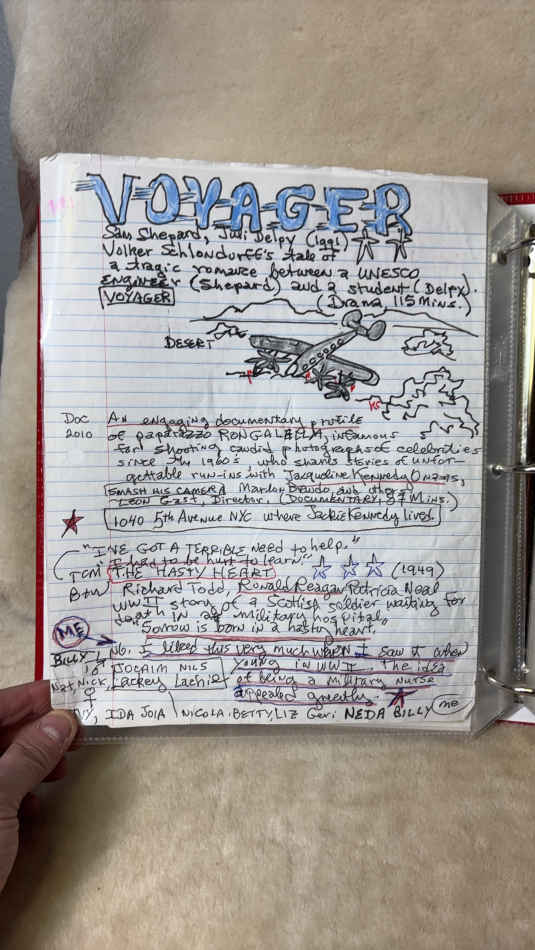 VOYAGER
Sam Shepard, Juli Delpy (1991)
Volker Schlondorff's tale of
a tragic romance between a UNESCO
ENGINEER (Shepard) and a student (Delpy).
VOYAGER (Drama 115 Mins.)
DESERT
Doc An engaging documentary profile
2010 of paparazzo RON GALELLA, infamous
for shooting candid photographs of celebrities
since the 1960's who shares stories of unfor-
gettable run-ins with Jacqueline Kennedy Onassis,
SMASH HIS CAMERA Marlon Brando and others
LEON Gast, Director. (DOCUMENTARY, 87 Mins.)
1040 5th Avenue NYC where Jackie Kennedy lived.
"I'VE GOT A TERRIBLE need to help."
I had to be hurt to learn"
TCM THE HASTY HEART (1949)
B+W Richard Todd, Ronald Reagan Patricia Neal
WWII story of a Scottish soldier waiting for
death in a military hospital.
"Sorrow is born in a hasty heart,
ME
No. I liked this very much when I saw it when
BILLY young in WWII. The idea
JOCAIM NILS of being a military nurse
Nat, Nick, Lackey Lachie appealed greatly.
IDA JOIA NICOLA BETTY, LIZ Geri NEDA BILLY me